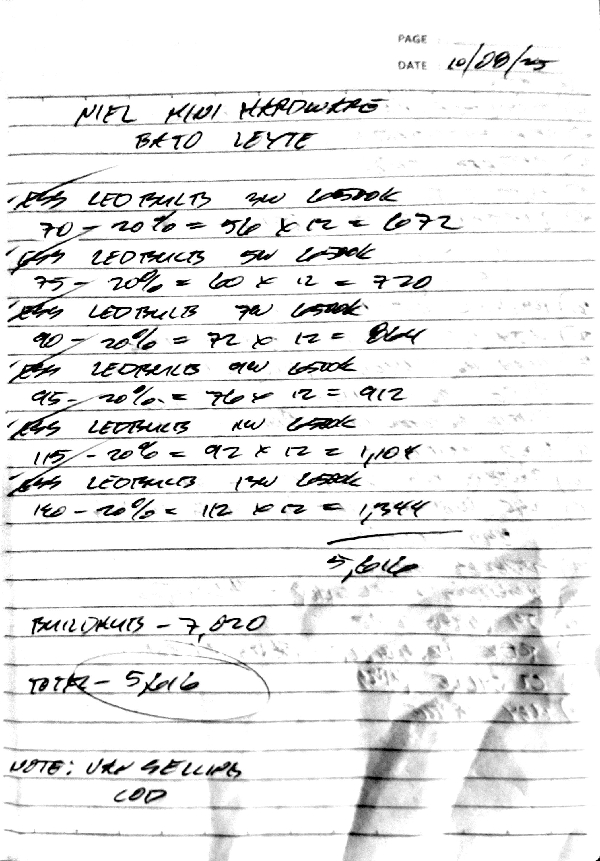 PAGE
DATE 10/08/25
NIEL MINI HARDWARE
BATO LEYTE
ESS LEDBULBS 3W 6500K
70 - 20% = 56 x 12 = 672
ESS LEDBULBS 5W 6500K
75 - 20% = 60 x 12 = 720
ESS LEDBULBS 7W 6500K
90 - 20% = 72 x 12 = 864
ESS LEDBULBS 9W 6500K
95 - 20% = 76 x 12 = 912
ESS LEDBULBS 11W 6500K
115 - 20% = 92 x 12 = 1,104
ESS LEDBULBS 13W 6500K
140 - 20% = 112 x 12 = 1,344
5,616
- 7,020
TOTAL - 5,616
NOTE: VAN SELLING
COD